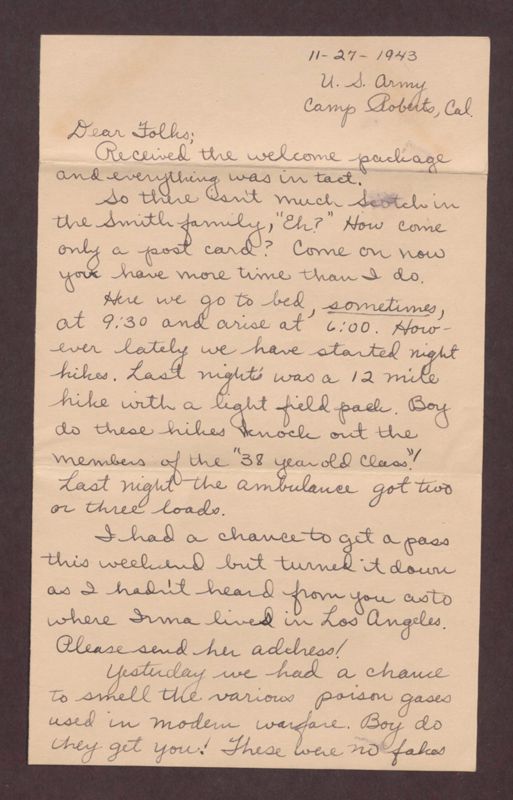 11-27-1943
U. S. Army
Camp Roberts, Cal.
Dear Folks;
Received the welcome package
and everything was in tact.
So there isn't much Scotch in
the Smith family, "Eh?" How come
only a post card? Come on now
you have more time than I do.
Here we go to bed, sometimes,
at 9:30 and arise at 6:00. How-
ever lately we have started night
hikes. Last night's was a 12 mile
hike with a light field pack. Boy
do these hikes knock out the
members of the "38 year old class"!
Last night the ambulance got two
or three loads.
I had a chance to get a pass
this weekend but turned it down
as I hadn't heard from you as to
where Irma lived in Los Angeles.
Please send her address!
Yesterday we had a chance
to smell the various poison gases
used in modern warfare. Boy do
they get you! These were no fakes